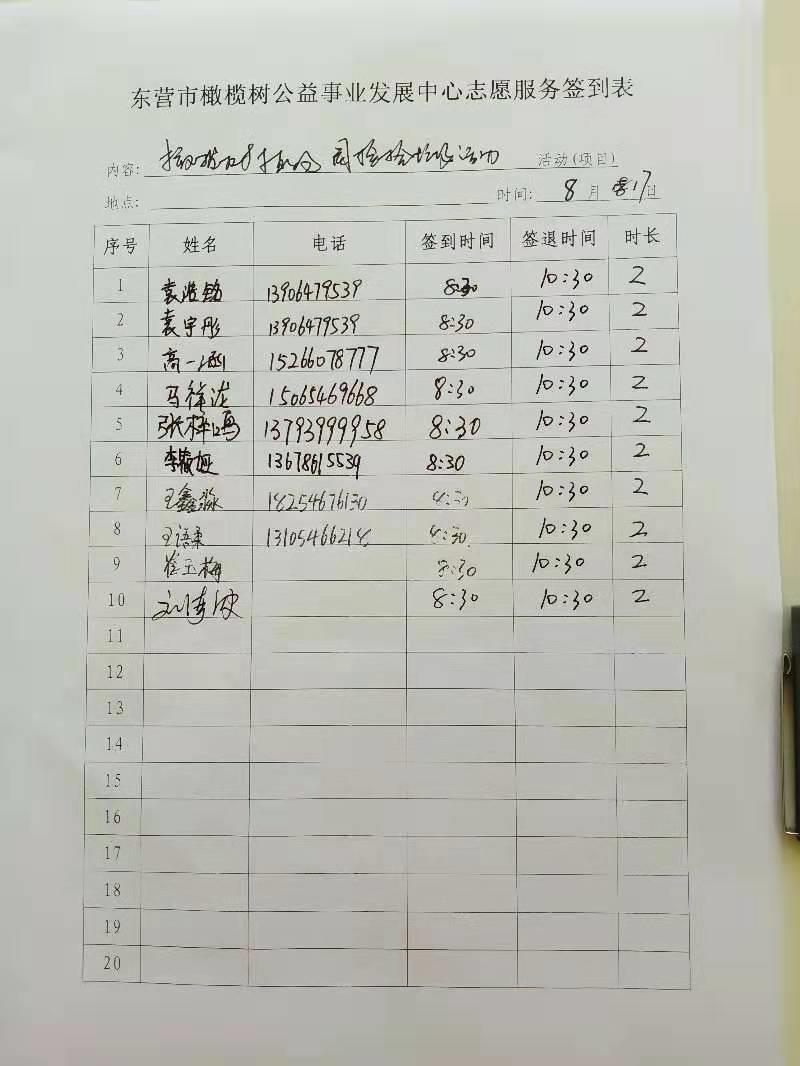 东营市橄榄树公益事业发展中心志愿服务签到表
内容: 捡拾垃圾活动 活动(项目)
地点: 时间: 8 月 17 日
序号 姓名 电话 签到时间 签退时间 时长
1 袁浩铭 13906479539 8:30 10:30 2
2 袁宇彤 13906479539 8:30 10:30 2
3 高一涵 15266078777 8:30 10:30 2
4 马 15065469668 8:30 10:30 2
5 张梓鸣 13793999958 8:30 10:30 2
6 李 13678615539 8:30 10:30 2
7 王鑫淼 18254676130 8:30 10:30 2
8 王语柔 13105466218 8:30 10:30 2
9 崔玉梅 8:30 10:30 2
10 刘 8:30 10:30 2
11
12
13
14
15
16
17
18
19
20